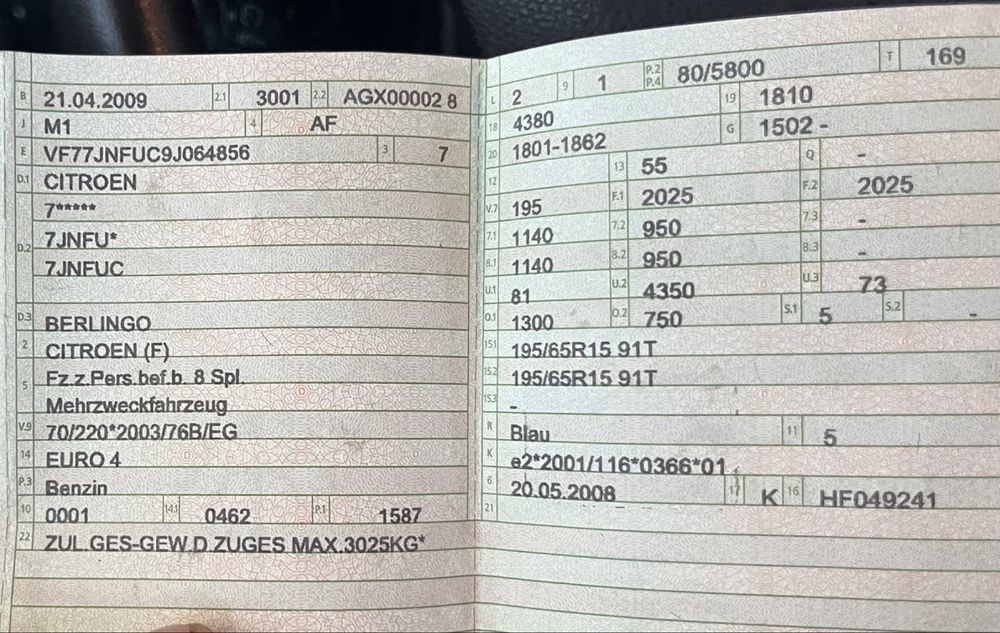 B 21.04.2009 2.1 3001 2.2 AGX00002 8
J M1 4 AF
E VF77JNFUC9J064856 3 7
D.1 CITROEN
7*****
D.2 7JNFU*
7JNFUC
D.3 BERLINGO
2 CITROEN (F)
5 Fz.z.Pers.bef.b. 8 Spl.
Mehrzweckfahrzeug
V.9 70/220*2003/76B/EG
14 EURO 4
P.3 Benzin
10 0001 14.1 0462 P.1 1587
22 ZUL.GES-GEW.D.ZUGES MAX.3025KG*
L 2 9 1 P.2 P.4 80/5800 T 169
18 4380 19 1810
20 1801-1862 G 1502 -
12 13 55 Q -
V.7 195 F.1 2025 F.2 2025
7.1 1140 7.2 950 7.3 -
8.1 1140 8.2 950 8.3 -
U.1 81 U.2 4350 U.3 73
O.1 1300 O.2 750 S.1 5 S.2 -
15.1 195/65R15 91T
15.2 195/65R15 91T
15.3 -
R Blau 11 5
K e2*2001/116*0366*01
6 20.05.2008 17 K 16 HF049241
21